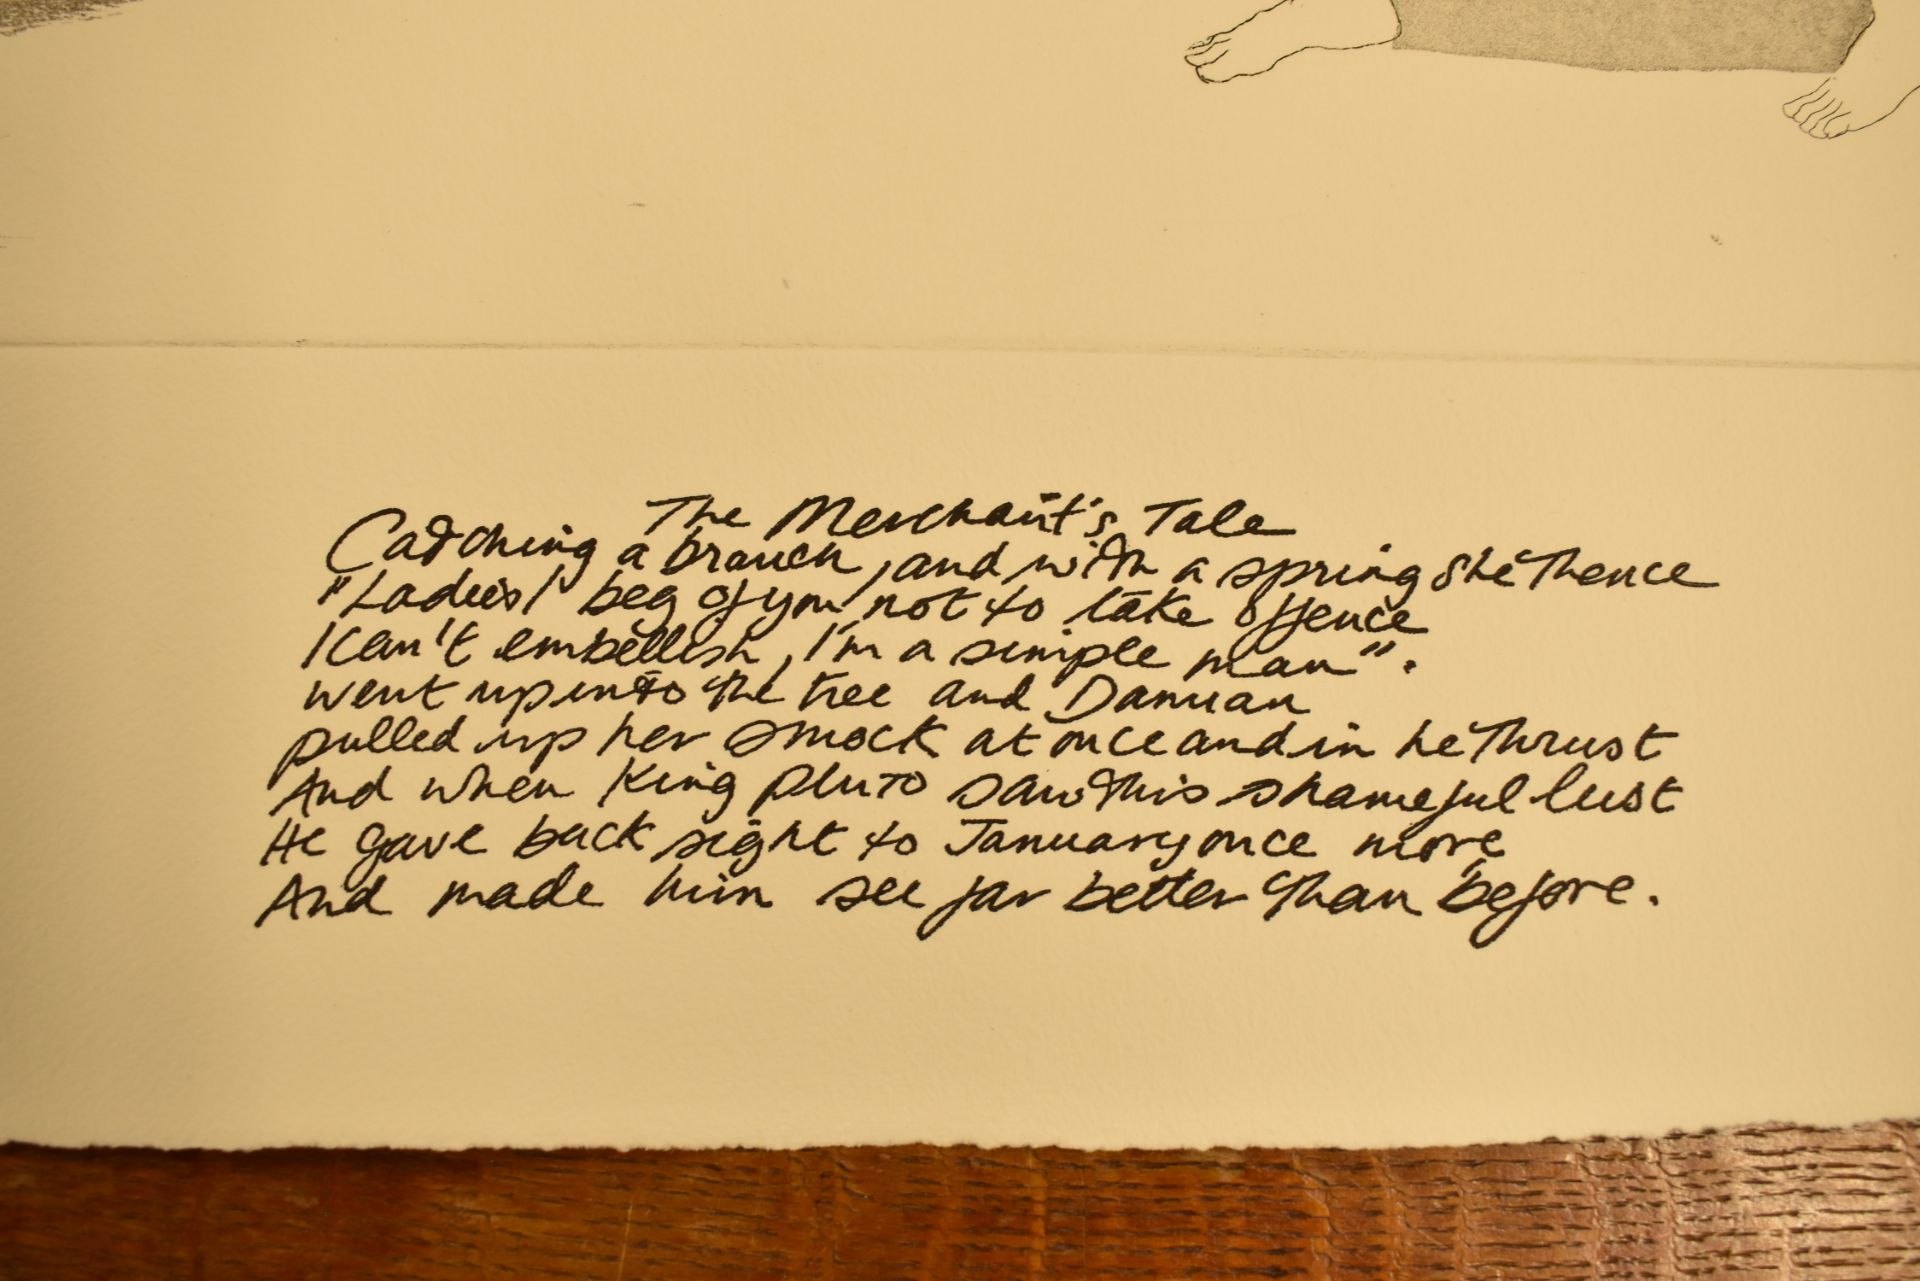 The Merchant's Tale
Catching a branch, and with a spring she thence
"Ladies I beg of you not to take offence
I can't embellish, I'm a simple man".
went up into the tree and Damian
pulled up her smock at once and in he thrust
And when King Pluto saw this shameful lust
He gave back sight to January once more
And made him see far better than before.